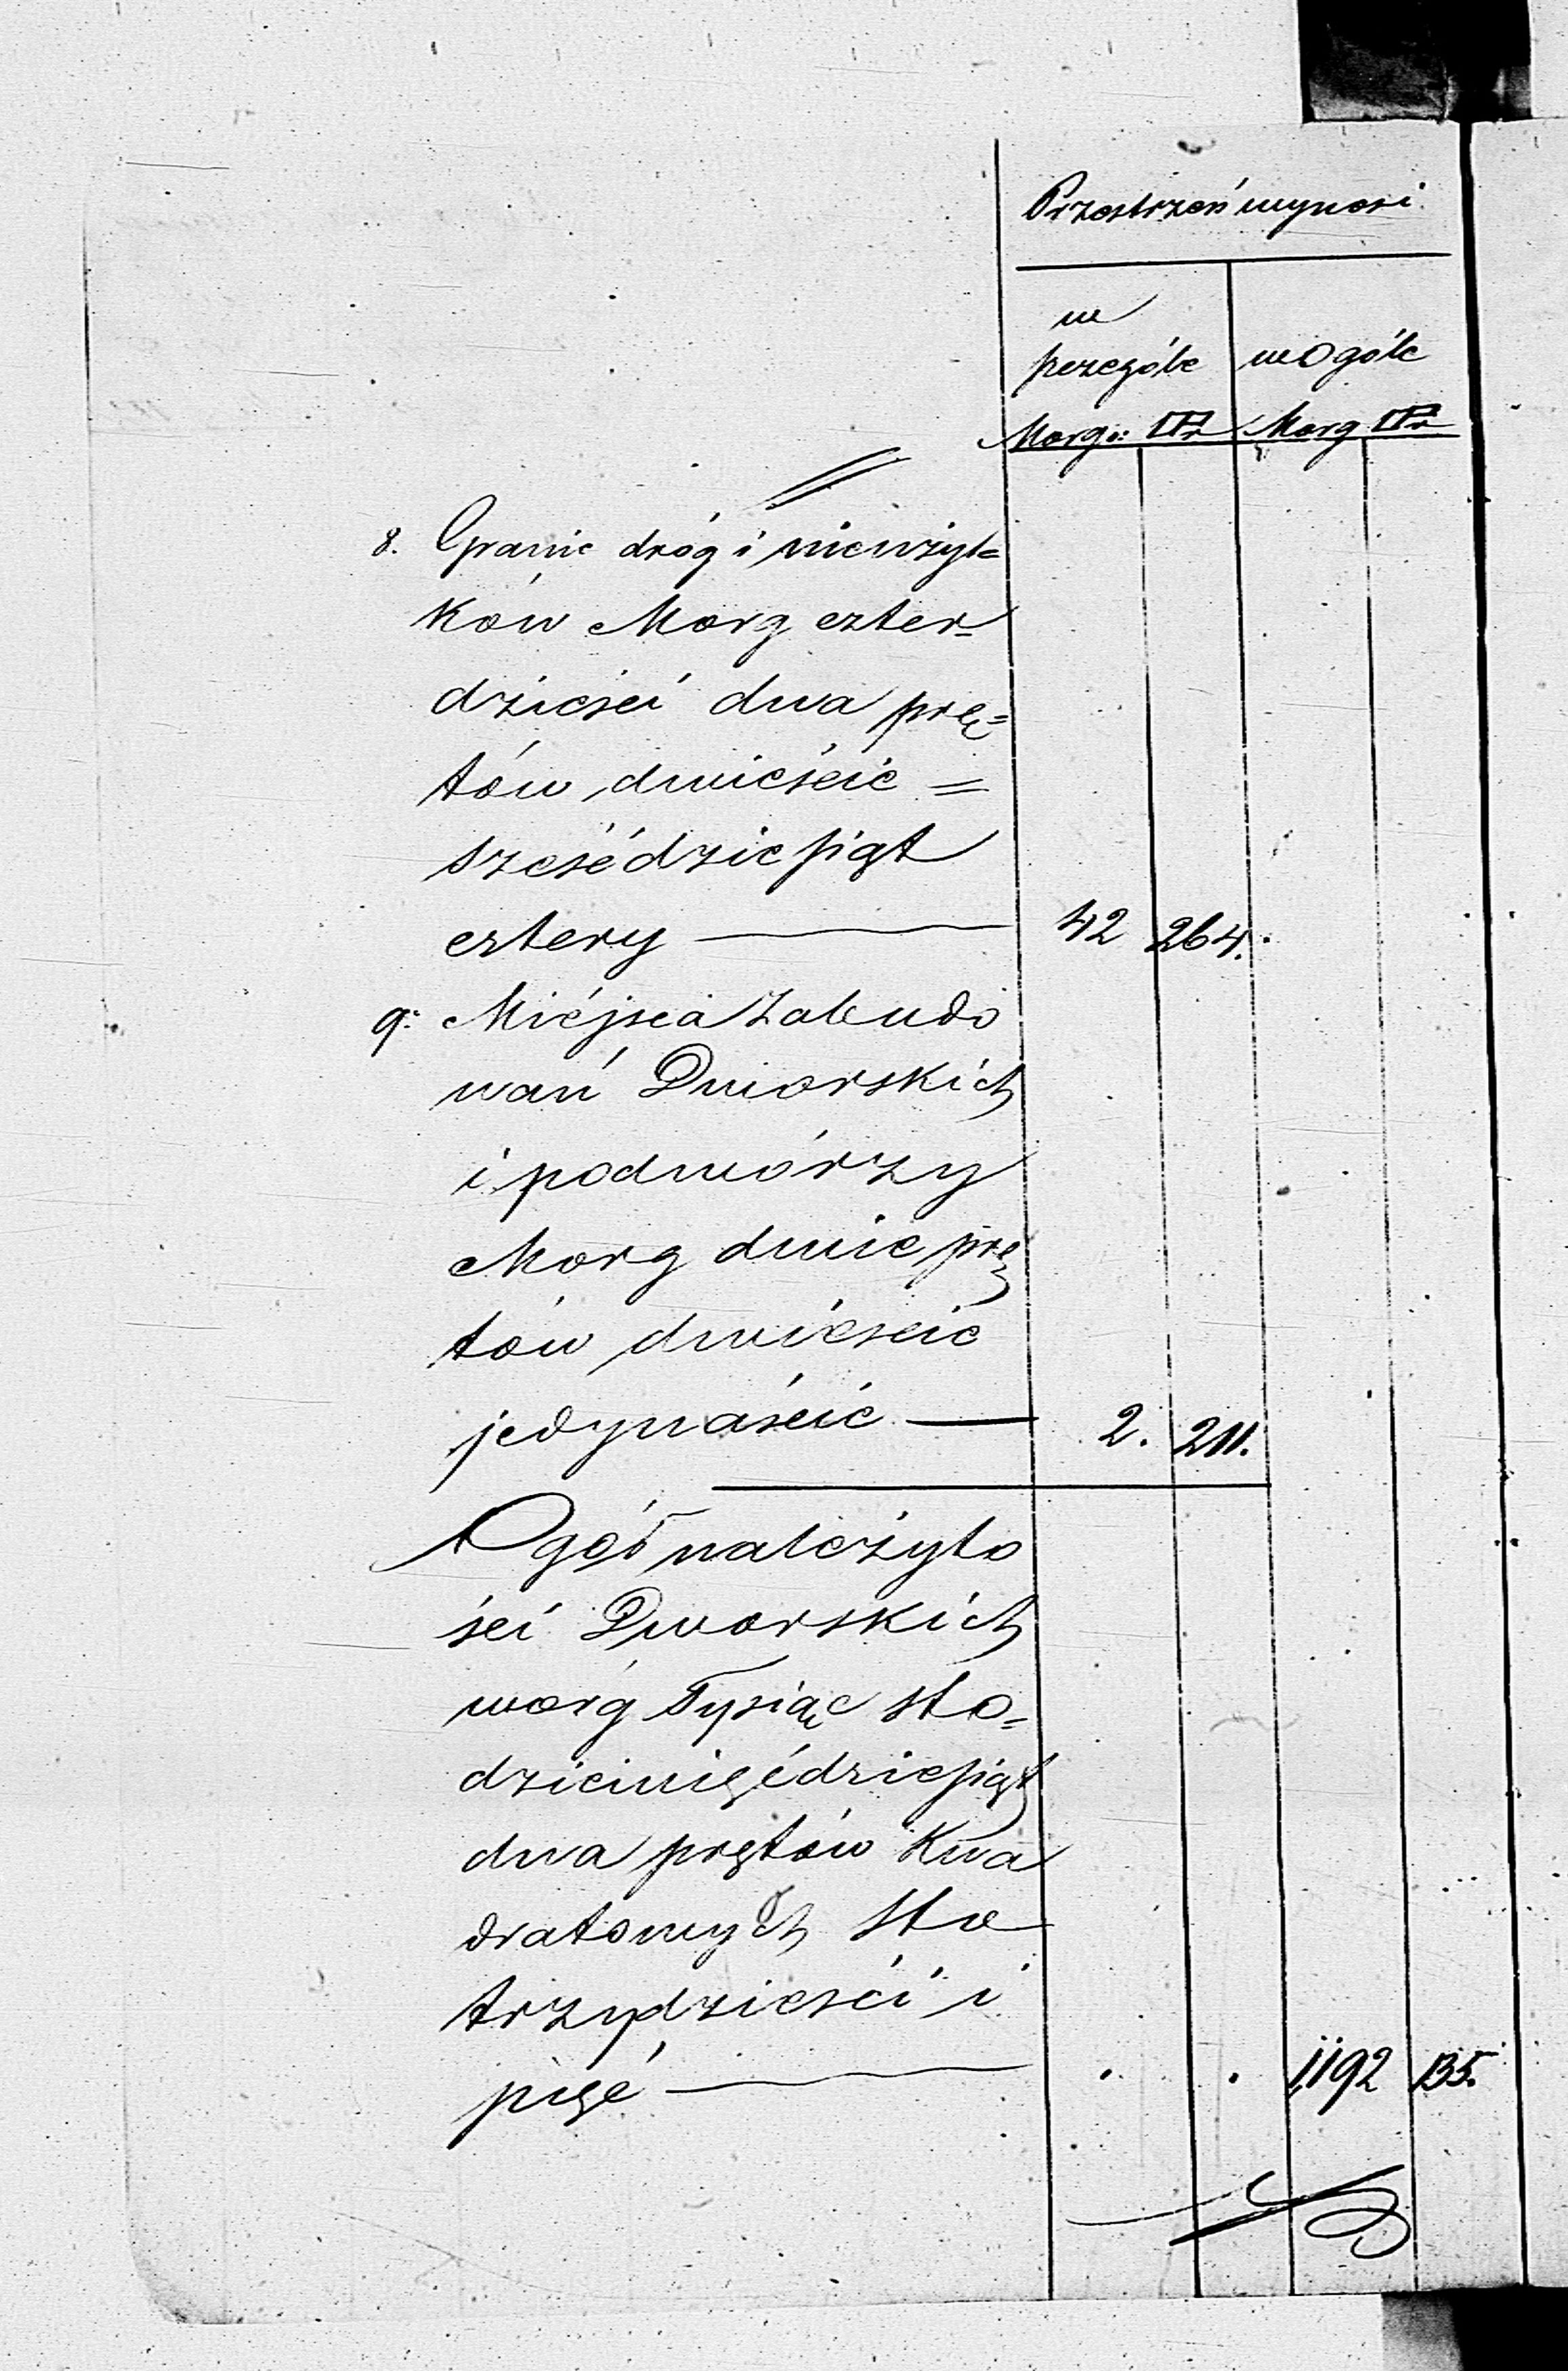 Przestrzeń wynosi
w
szczególe wogóle
Morg: □Pr Morg □Pr
8. Granic dróg i nieużyt=
ków Morg czter=
dzieści dwa prę=
tów dwieście =
sześćdziesiąt
cztery — 42 264.
9: Miéjsca Zabudo
wań Dworskich
i podwórzy
Morg dwie prę
tów dwieście
jedynaście — 2. 211.
Ogół należyto
ści Dworskich
morg Tysiąc sto=
dziewięćdziesiąt
dwa prętów Kwa
dratowych sto
trzydzieści i
pięć — . . 1192 135.